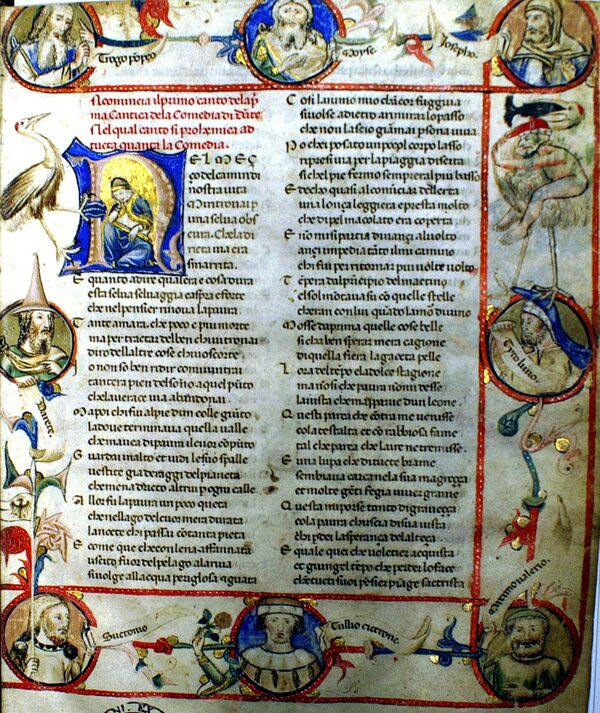 Trogo popeo
Moyse
Josepho
N comincia il primo canto de la pri
ma Cantica de la Comedia di Dante
Nel qual canto si prohemica ad
tucta quanta la Comedia.
NEL MEÇ
ço del camin di
nostra uita
Mi ritrouai p
una selua obs
cura. Che la di
ricta uia era
smarrita.
E quanto adire qual era e cosa dura
esta selua seluaggia e aspra e forte
che nel pensier rinoua la paura
T ante amara che poco e piu morte
ma per tractar del ben chui trouai
diro dellaltre cose chi uo scorte
I o non so ben ridir comiui trai
tantera pien del sono aquel puto
che la uerace uia abandonai
M a poi chi fui alpie dun colle giuto
la doue terminaua quella ualle
che mauea di paura il cor coputo
G uardai inalto et uidi le sue spalle
uestite gia de raggi del pianeta
che mena dricto altrui p ogni calle
A llor fu la paura un poco queta
che nel lago del cor mera durata
la nocte chi passai co tanta pieta
E come que che con lena affannata
uscito fuor del pelago alariua
si uolge allacqua perigliosa e guata
C osi lanimo mio chancor fuggiua
si uolse adietro arimirar lo passo
che non lascio giamai psona uiua
P o che posato un poco el corpo lasso
ripresi uia per la piaggia diserta
si chel pie fermo sempre eral piu basso
E t ecco quasi al cominciar dellerta
una lonça leggiera e presta molto
che di pel macolato era couerta
E non mi si partia dinançi al uolto
ançi impedia tato il mi camino
chi fui per ritornar piu uolte uolto
T empera dal pricipio del maetino
el sol motaua su co quelle stelle
cheran con lui quado lamor diuino
M osse da prima quelle cose belle
si cha ben sperar mera cagione
di quella fiera la gaeta pelle
L ora del tepo e la dolce stagione
ma non si che paura non mi desse
la uista che mapparue dun leone.
Q uesta parea che cotra me uenisse
co la testalta et co rabbiosa fame
si che parea che laere ne tremisse.
E una lupa che di tucte brame
sembiaua carca ne la sua magreçça
et molte geti fe gia uiuer grame
Q uesta mi porse tanto di graueçça
co la paura chuscia di sua uista
chi pdei la speranca de laltecça.
E quale quei che uolentier acquista
et giungel tepo che pder lo face
che tucti suoi pensier piage e sactrista
Tyto liuio.
Suetonio
Tullio cicerone.
Maximo ualerio.